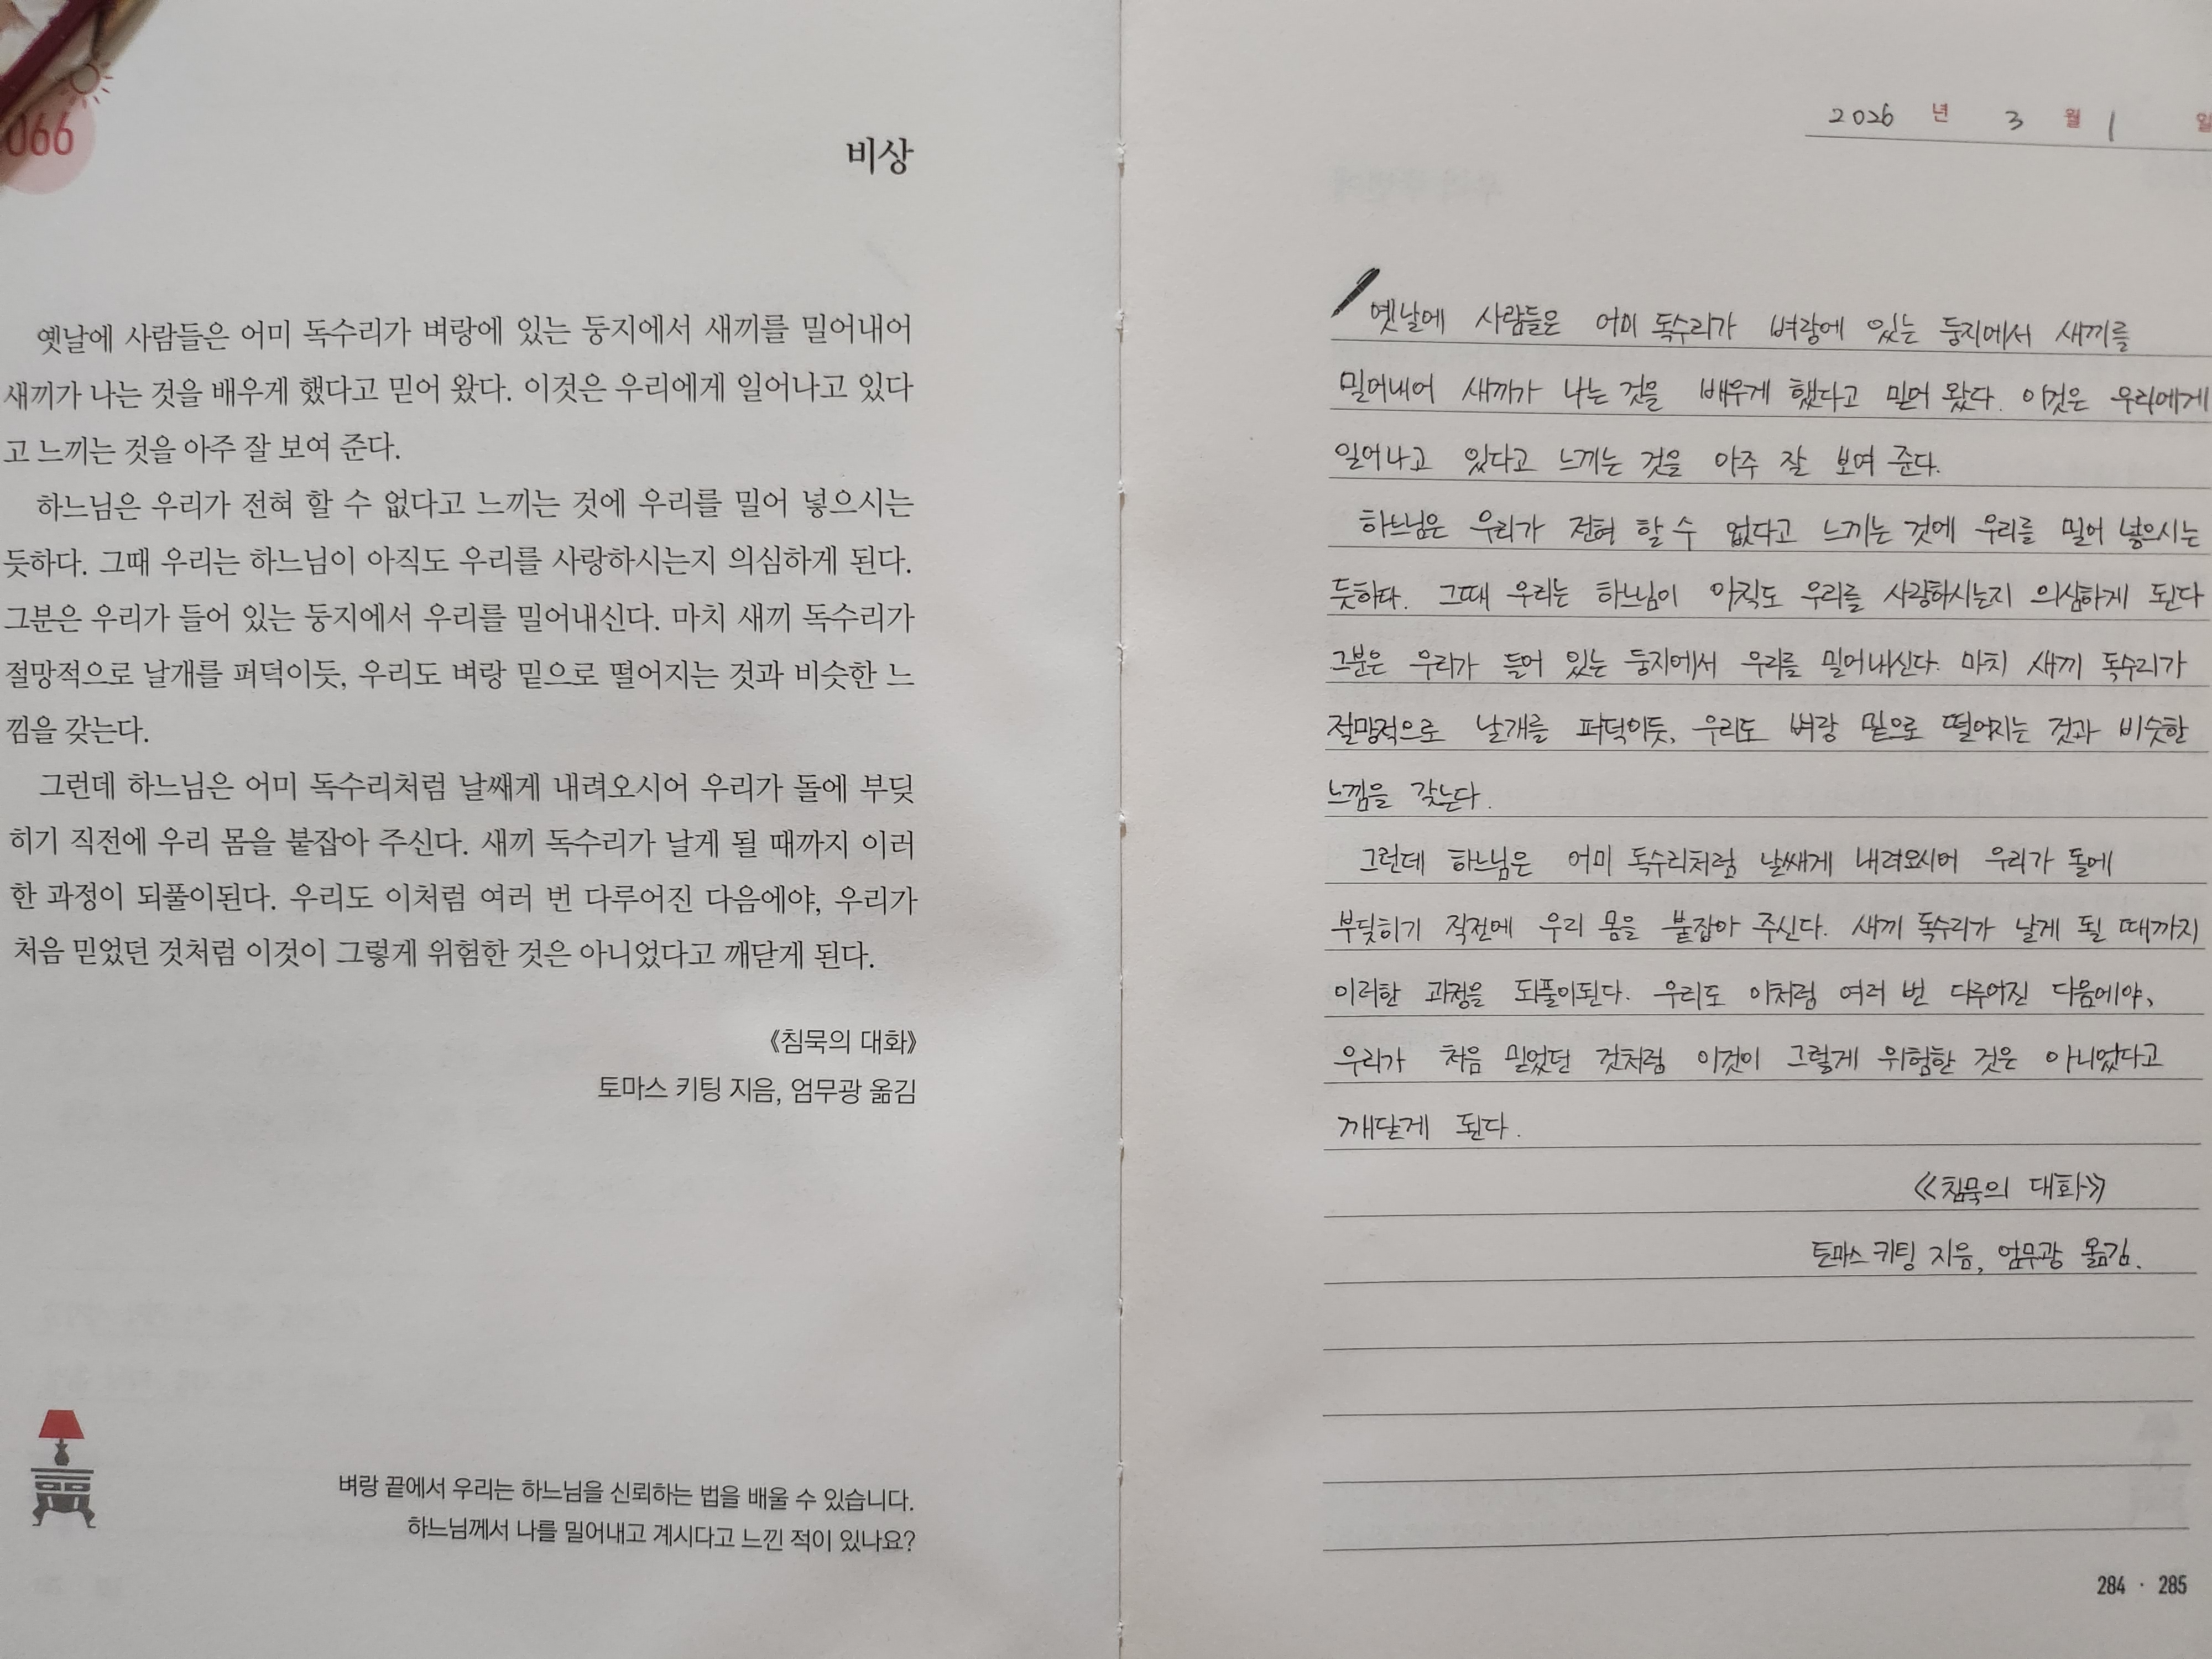 066
비상
옛날에 사람들은 어미 독수리가 벼랑에 있는 둥지에서 새끼를 밀어내어
새끼가 나는 것을 배우게 했다고 믿어 왔다. 이것은 우리에게 일어나고 있다
고 느끼는 것을 아주 잘 보여 준다.
하느님은 우리가 전혀 할 수 없다고 느끼는 것에 우리를 밀어 넣으시는
듯하다. 그때 우리는 하느님이 아직도 우리를 사랑하시는지 의심하게 된다.
그분은 우리가 들어 있는 둥지에서 우리를 밀어내신다. 마치 새끼 독수리가
절망적으로 날개를 퍼덕이듯, 우리도 벼랑 밑으로 떨어지는 것과 비슷한 느
낌을 갖는다.
그런데 하느님은 어미 독수리처럼 날쌔게 내려오시어 우리가 돌에 부딪
히기 직전에 우리 몸을 붙잡아 주신다. 새끼 독수리가 날게 될 때까지 이러
한 과정이 되풀이된다. 우리도 이처럼 여러 번 다루어진 다음에야, 우리가
처음 믿었던 것처럼 이것이 그렇게 위험한 것은 아니었다고 깨닫게 된다.
《침묵의 대화》
토마스 키팅 지음, 엄무광 옮김
벼랑 끝에서 우리는 하느님을 신뢰하는 법을 배울 수 있습니다.
하느님께서 나를 밀어내고 계시다고 느낀 적이 있나요?
2026 년 3 월 1 일
옛날에 사람들은 어미 독수리가 벼랑에 있는 둥지에서 새끼를
밀어내어 새끼가 나는 것을 배우게 했다고 믿어 왔다. 이것은 우리에게
일어나고 있다고 느끼는 것을 아주 잘 보여 준다.
하느님은 우리가 전혀 할 수 없다고 느끼는 것에 우리를 밀어 넣으시는
듯하다. 그때 우리는 하느님이 아직도 우리를 사랑하시는지 의심하게 된다
그분은 우리가 들어 있는 둥지에서 우리를 밀어내신다. 마치 새끼 독수리가
절망적으로 날개를 퍼덕이듯, 우리도 벼랑 밑으로 떨어지는 것과 비슷한
느낌을 갖는다.
그런데 하느님은 어미 독수리처럼 날쌔게 내려오시어 우리가 돌에
부딪히기 직전에 우리 몸을 붙잡아 주신다. 새끼 독수리가 날게 될 때까지
이러한 과정을 되풀이된다. 우리도 이처럼 여러 번 다루어진 다음에야,
우리가 처음 믿었던 것처럼 이것이 그렇게 위험한 것은 아니었다고
깨닫게 된다.
《침묵의 대화》
토마스 키팅 지음, 엄무광 옮김.
284 · 285